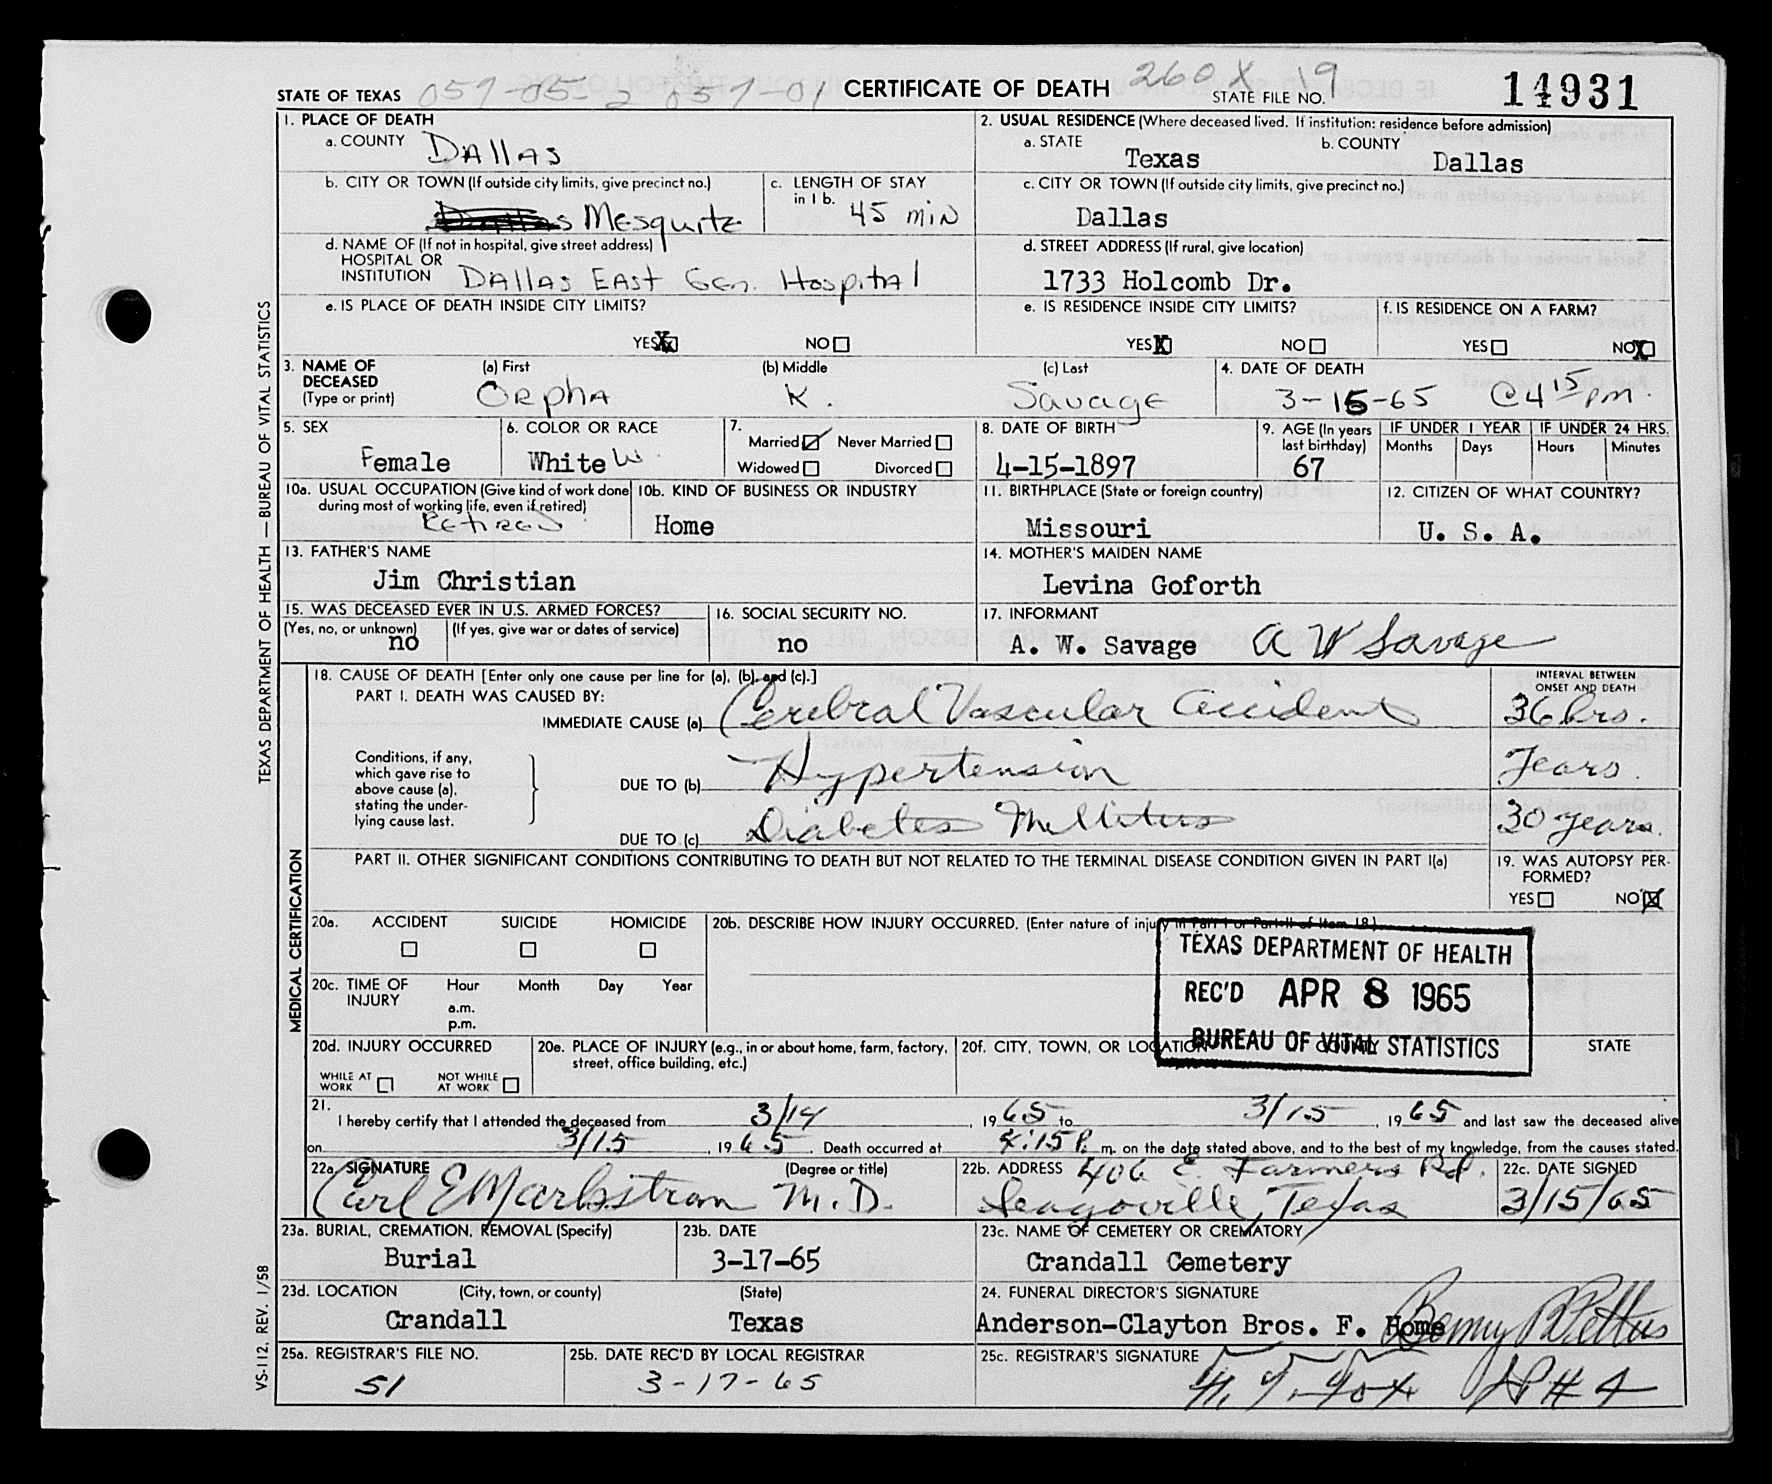 STATE OF TEXAS 059-05-2 059-01 CERTIFICATE OF DEATH 260X 19 STATE FILE NO. 14931
1. PLACE OF DEATH
a. COUNTY Dallas
2. USUAL RESIDENCE (Where deceased lived. If institution: residence before admission)
a. STATE Texas b. COUNTY Dallas
b. CITY OR TOWN (If outside city limits, give precinct no.) Mesquite
c. LENGTH OF STAY in 1 b. 45 min
c. CITY OR TOWN (If outside city limits, give precinct no.)
Dallas
d. NAME OF (If not in hospital, give street address)
HOSPITAL OR
INSTITUTION Dallas East Gen. Hospital
d. STREET ADDRESS (If rural, give location)
1733 Holcomb Dr.
e. IS PLACE OF DEATH INSIDE CITY LIMITS?
YES X NO
e. IS RESIDENCE INSIDE CITY LIMITS?
YES X NO
f. IS RESIDENCE ON A FARM?
YES NO X
3. NAME OF DECEASED (Type or print)
(a) First (b) Middle (c) Last
Orpha K. Savage
4. DATE OF DEATH
3-15-65 @ 4 15 pm.
5. SEX
Female
6. COLOR OR RACE
White W.
7. Married Never Married
Widowed Divorced
8. DATE OF BIRTH
4-15-1897
9. AGE (In years last birthday)
67
IF UNDER 1 YEAR IF UNDER 24 HRS.
Months Days Hours Minutes
10a. USUAL OCCUPATION (Give kind of work done during most of working life, even if retired)
Retired
10b. KIND OF BUSINESS OR INDUSTRY
Home
11. BIRTHPLACE (State or foreign country)
Missouri
12. CITIZEN OF WHAT COUNTRY?
U. S. A.
13. FATHER'S NAME
Jim Christian
14. MOTHER'S MAIDEN NAME
Levina Goforth
15. WAS DECEASED EVER IN U.S. ARMED FORCES?
(Yes, no, or unknown) (If yes, give war or dates of service)
no
16. SOCIAL SECURITY NO.
no
17. INFORMANT
A. W. Savage A W Savage
18. CAUSE OF DEATH [Enter only one cause per line for (a), (b), and (c).]
PART I. DEATH WAS CAUSED BY:
IMMEDIATE CAUSE (a) Cerebral Vascular Accident
INTERVAL BETWEEN ONSET AND DEATH
36 hrs.
Conditions, if any,
which gave rise to
above cause (a),
stating the under-
lying cause last.
DUE TO (b) Hypertension Years.
DUE TO (c) Diabetes Mellitus 30 years.
PART II. OTHER SIGNIFICANT CONDITIONS CONTRIBUTING TO DEATH BUT NOT RELATED TO THE TERMINAL DISEASE CONDITION GIVEN IN PART I(a)
19. WAS AUTOPSY PER-
FORMED?
YES NO X
20a. ACCIDENT SUICIDE HOMICIDE
20b. DESCRIBE HOW INJURY OCCURRED. (Enter nature of injury in Part I or Part II of Item 18.)
20c. TIME OF INJURY Hour Month Day Year
a.m.
p.m.
TEXAS DEPARTMENT OF HEALTH
REC'D APR 8 1965
BUREAU OF VITAL STATISTICS
20d. INJURY OCCURRED
WHILE AT WORK NOT WHILE AT WORK
20e. PLACE OF INJURY (e.g., in or about home, farm, factory, street, office building, etc.)
20f. CITY, TOWN, OR LOCATION COUNTY STATE
21.
I hereby certify that I attended the deceased from 3/14, 1965 to 3/15, 1965 and last saw the deceased alive
on 3/15, 1965. Death occurred at 4:15 P. m. on the date stated above, and to the best of my knowledge, from the causes stated.
22a. SIGNATURE (Degree or title)
Carl E Markstrom M.D.
22b. ADDRESS 406 E. Farmers Rd.
Seagoville, Texas
22c. DATE SIGNED
3/15/65
23a. BURIAL, CREMATION, REMOVAL (Specify)
Burial
23b. DATE
3-17-65
23c. NAME OF CEMETERY OR CREMATORY
Crandall Cemetery
23d. LOCATION (City, town, or county) (State)
Crandall Texas
24. FUNERAL DIRECTOR'S SIGNATURE
Anderson-Clayton Bros. F. Home Benny R Pettus
25a. REGISTRAR'S FILE NO.
51
25b. DATE REC'D BY LOCAL REGISTRAR
3-17-65
25c. REGISTRAR'S SIGNATURE
TEXAS DEPARTMENT OF HEALTH — BUREAU OF VITAL STATISTICS
MEDICAL CERTIFICATION
VS-112, REV. 1/58